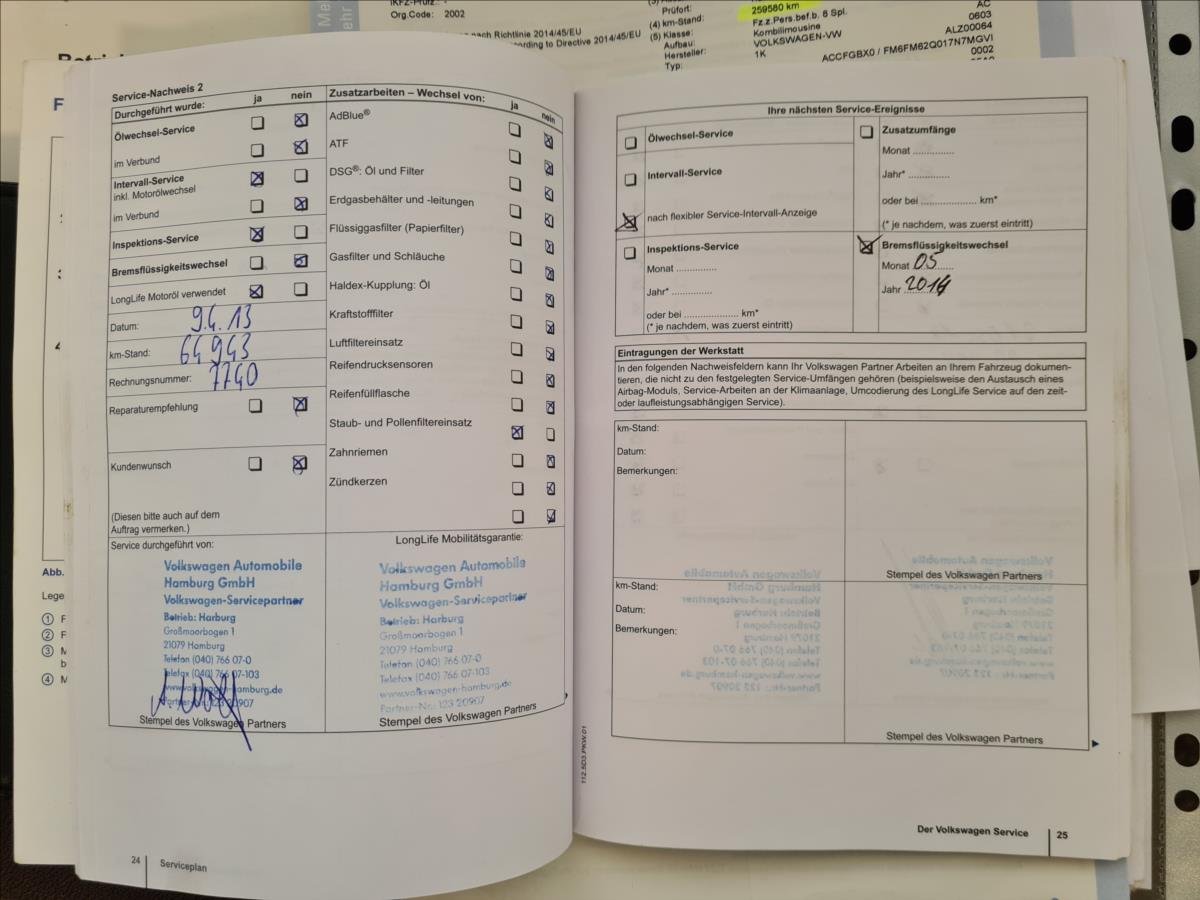 Org.Code: 2002
nach Richtlinie 2014/45/EU
ording to Directive 2014/45/EU
Prüfort:
259580 km
(4) km-Stand:
Fz.z.Pers.bef.b. 8 Spl.
(5) Klasse:
Kombilimousine
Aufbau:
VOLKSWAGEN-VW
Hersteller:
1K
Typ:
AC
0603
ALZ00064
ACCFGBX0 / FM6FM62Q017N7MGVI
0002
Service-Nachweis 2
Durchgeführt wurde:
ja
nein
Ölwechsel-Service
im Verbund
Intervall-Service
inkl. Motorölwechsel
im Verbund
Inspektions-Service
Bremsflüssigkeitswechsel
LongLife Motoröl verwendet
Datum: 9.4.13
km-Stand: 64943
Rechnungsnummer: 7740
Reparaturempfehlung
Kundenwunsch
(Diesen bitte auch auf dem
Auftrag vermerken.)
Zusatzarbeiten – Wechsel von:
ja
nein
AdBlue®
ATF
DSG®: Öl und Filter
Erdgasbehälter und -leitungen
Flüssiggasfilter (Papierfilter)
Gasfilter und Schläuche
Haldex-Kupplung: Öl
Kraftstofffilter
Luftfiltereinsatz
Reifendrucksensoren
Reifenfüllflasche
Staub- und Pollenfiltereinsatz
Zahnriemen
Zündkerzen
Service durchgeführt von:
Volkswagen Automobile
Hamburg GmbH
Volkswagen-Servicepartner
Betrieb: Harburg
Großmoorbogen 1
21079 Hamburg
Telefon (040) 766 07-0
Telefax (040) 766 07-103
www.volkswagen-hamburg.de
Partner-Nr.: 123 20907
Stempel des Volkswagen Partners
LongLife Mobilitätsgarantie:
Volkswagen Automobile
Hamburg GmbH
Volkswagen-Servicepartner
Betrieb: Harburg
Großmoorbogen 1
21079 Hamburg
Telefon (040) 766 07-0
Telefax (040) 766 07-103
www.volkswagen-hamburg.de
Partner-Nr.: 123 20907
Stempel des Volkswagen Partners
24
Serviceplan
Abb.
Lege
1
2
3
4
112.5D3.PKW.01
Ihre nächsten Service-Ereignisse
Ölwechsel-Service
Intervall-Service
nach flexibler Service-Intervall-Anzeige
Zusatzumfänge
Monat ..............
Jahr* ..............
oder bei .................... km*
(* je nachdem, was zuerst eintritt)
Inspektions-Service
Monat ..............
Jahr* ..............
oder bei .................... km*
(* je nachdem, was zuerst eintritt)
Bremsflüssigkeitswechsel
Monat 05
Jahr 2014
Eintragungen der Werkstatt
In den folgenden Nachweisfeldern kann Ihr Volkswagen Partner Arbeiten an Ihrem Fahrzeug dokumen-
tieren, die nicht zu den festgelegten Service-Umfängen gehören (beispielsweise den Austausch eines
Airbag-Moduls, Service-Arbeiten an der Klimaanlage, Umcodierung des LongLife Service auf den zeit-
oder laufleistungsabhängigen Service).
km-Stand:
Datum:
Bemerkungen:
Stempel des Volkswagen Partners
km-Stand:
Datum:
Bemerkungen:
Stempel des Volkswagen Partners
Der Volkswagen Service
25